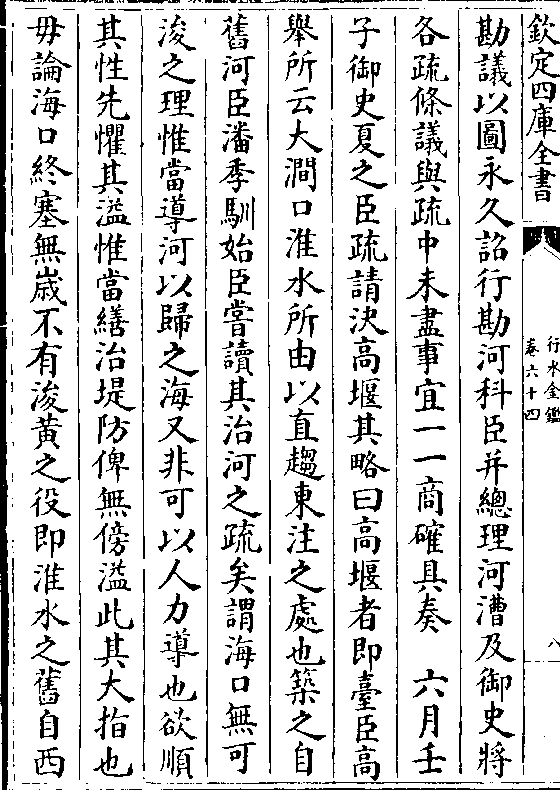 欽定四庫全書
行水金鑑
卷六十四
八
勘議以圖永久詔行勘河科臣并總理河漕及御史將
各疏條議與疏中未盡事宜一一商確具奏　六月壬
子御史夏之臣疏請決高堰其略曰高堰者即臺臣高
舉所云大澗口淮水所由以直趨東注之處也築之自
舊河臣潘季馴始臣嘗讀其治河之疏矣謂海口無可
浚之理惟當導河以歸之海又非可以人力導也欲順
其性先懼其溢惟當繕治堤防俾無傍溢此其大指也
毋論海口終塞無歲不有浚黃之役即淮水之舊自西